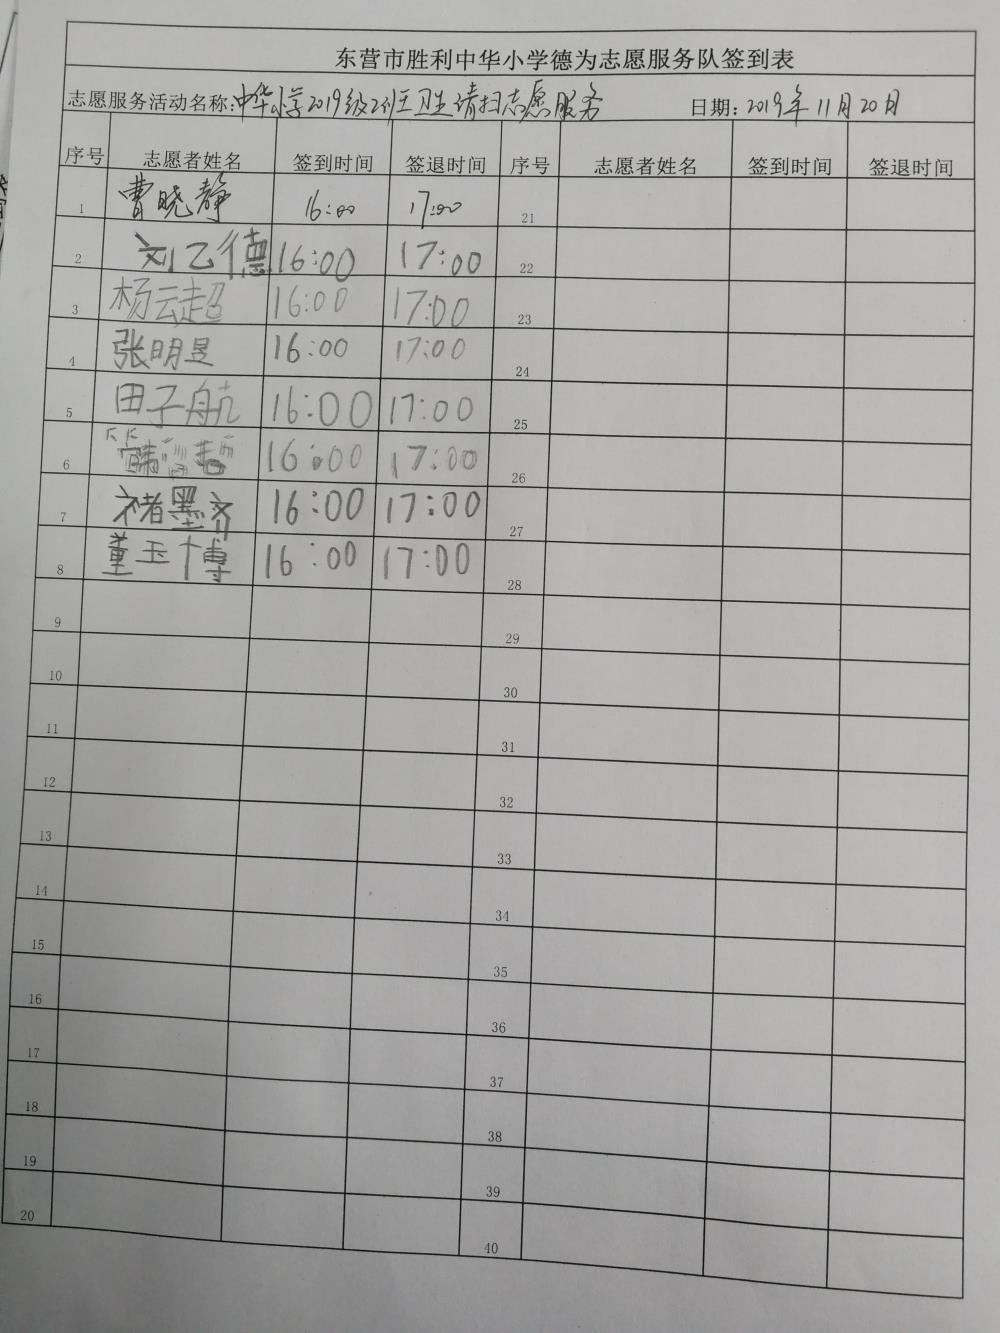 东营市胜利中华小学德为志愿服务队签到表
志愿服务活动名称:中华小学2019级2班卫生清扫志愿服务 日期:2019年11月20日
序号 志愿者姓名 签到时间 签退时间 序号 志愿者姓名 签到时间 签退时间
1 曹晓静 16:00 17:00 21
2 刘乙德 16:00 17:00 22
3 杨云超 16:00 17:00 23
4 张明昱 16:00 17:00 24
5 田子航 16:00 17:00 25
6 16:00 17:00 26
7 褚墨齐 16:00 17:00 27
8 董玉博 16:00 17:00 28
9 29
10 30
11 31
12 32
13 33
14 34
15 35
16 36
17 37
18 38
19 39
20 40